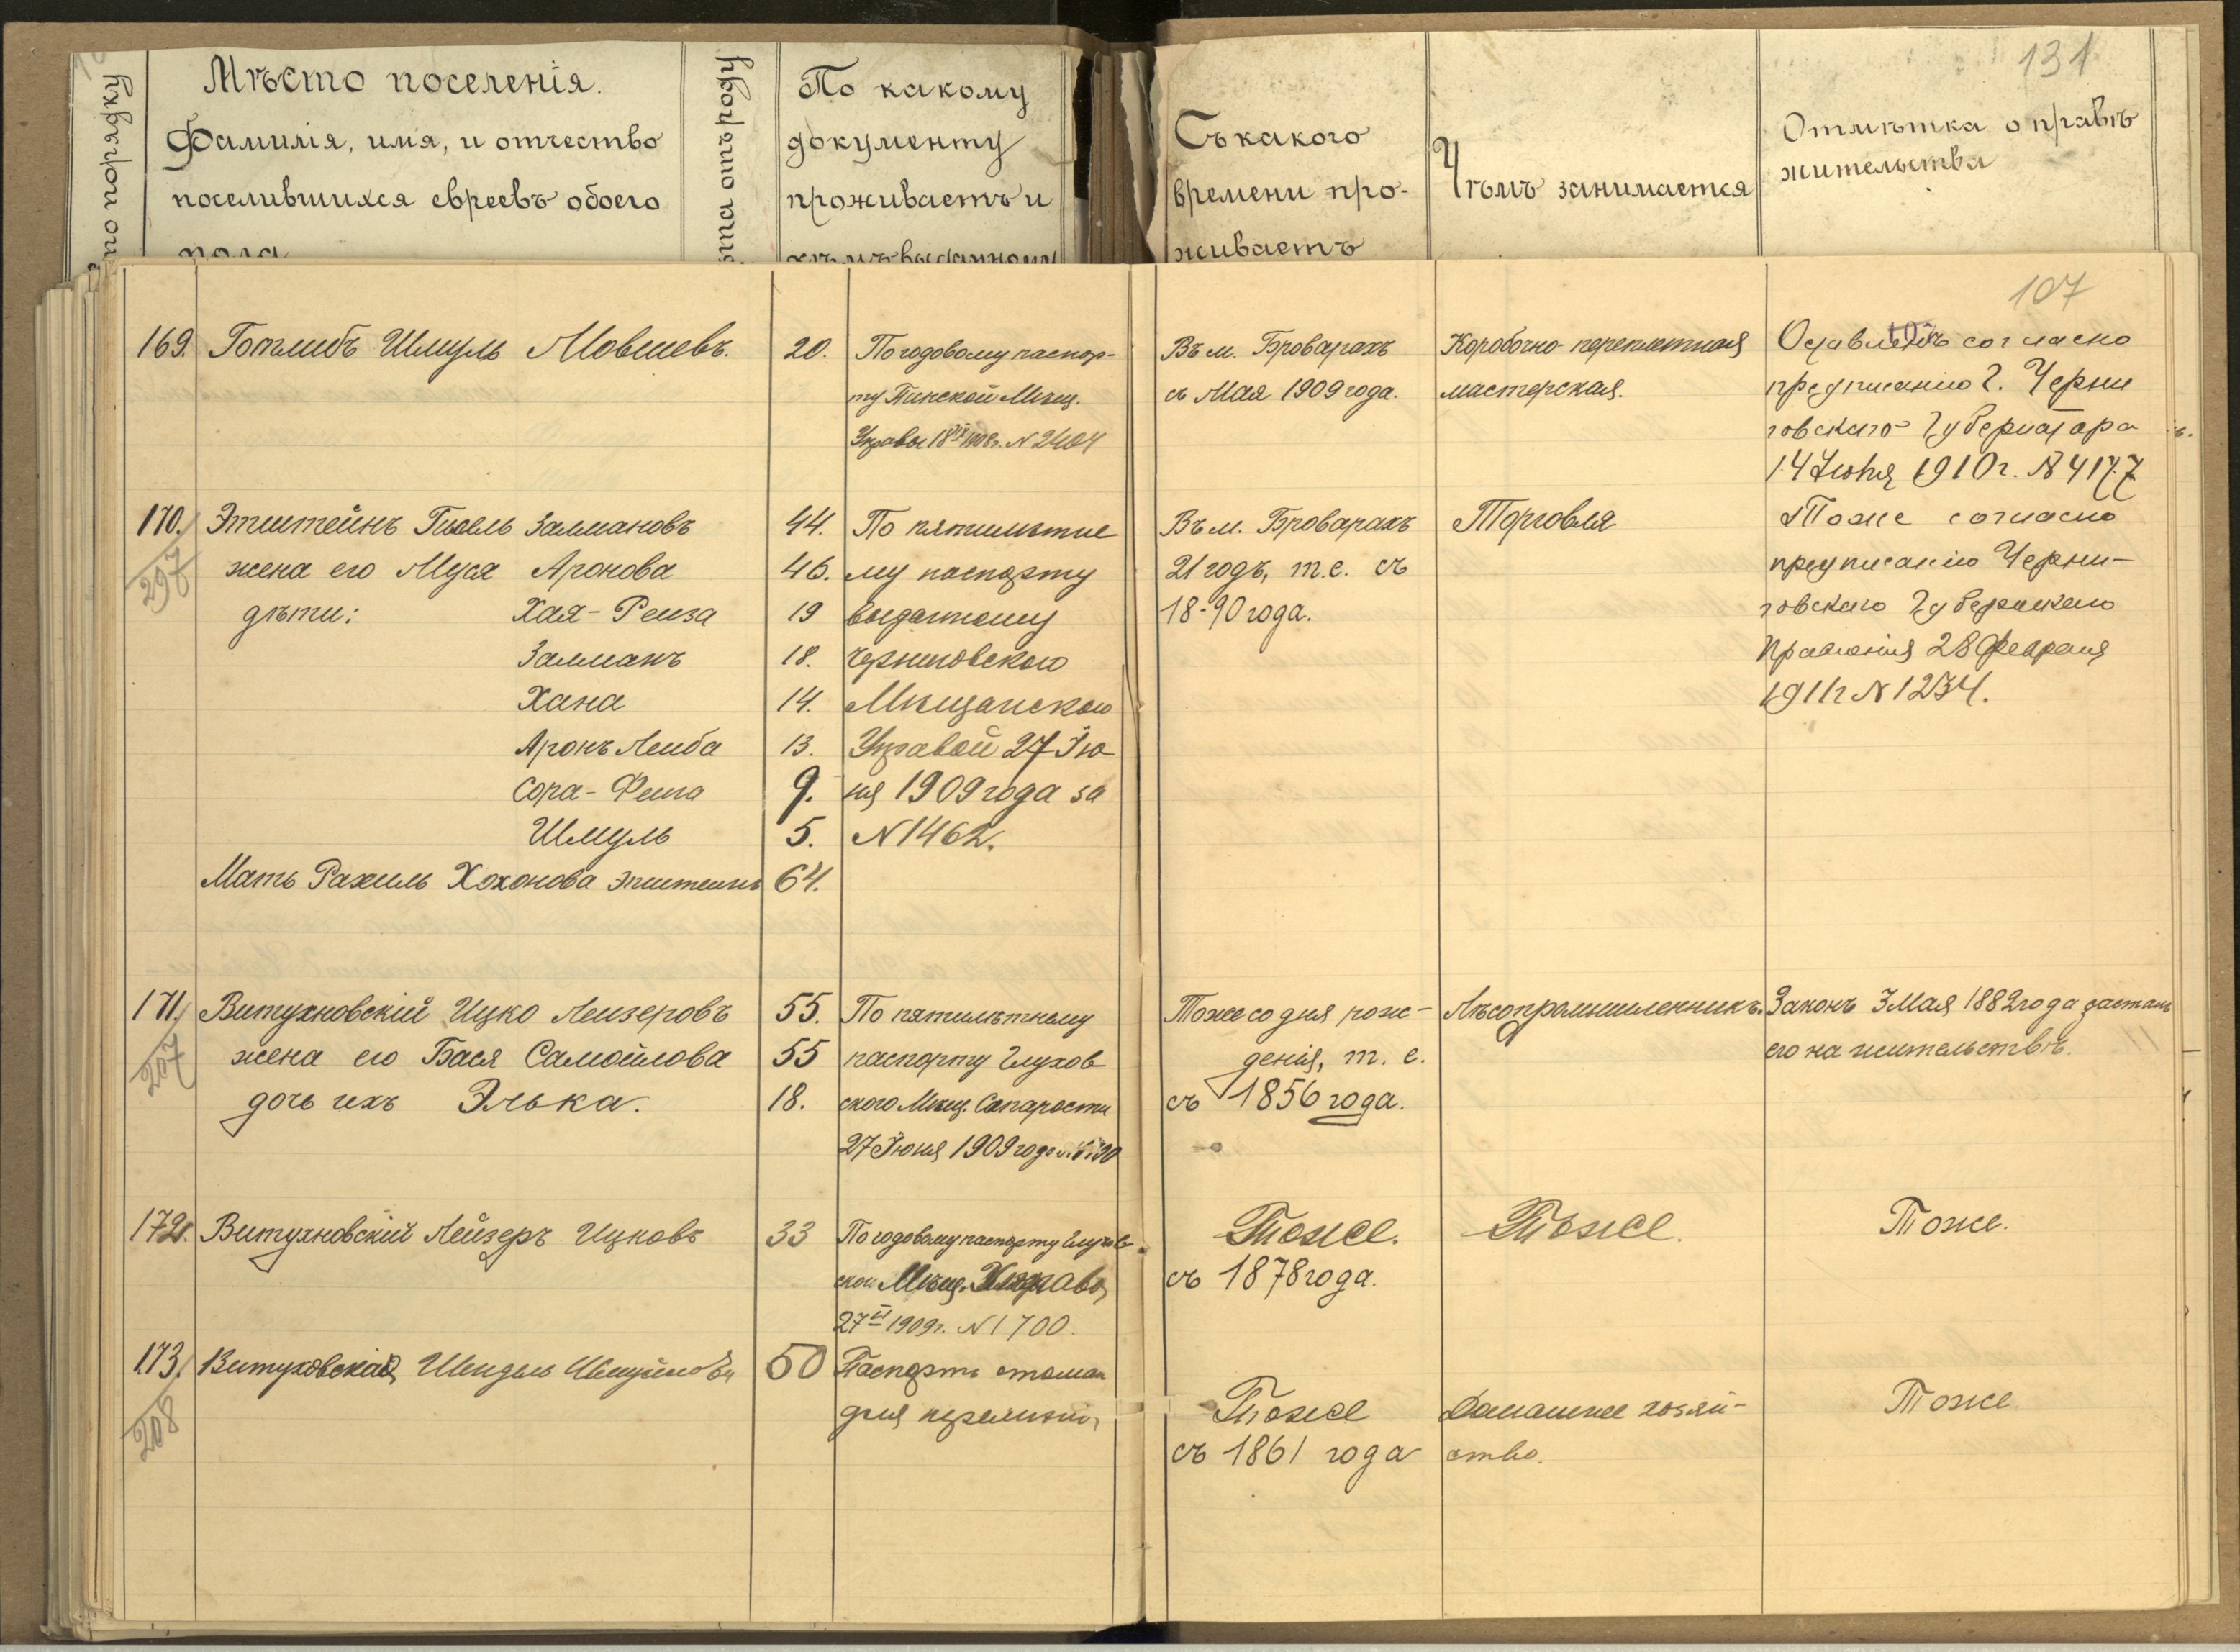 131
по порядку
Мѣсто поселенія.
Фамилія, имя, и отчество
поселившихся евреевъ обоего
пола
отъ роду
По какому
документу
проживаетъ и
кѣмъ выданному
Съ какого
времени про-
живаетъ
Чѣмъ занимается
Отмѣтка о правѣ
жительства
107
169. Готлибъ Шмуль Мовшевъ. 20.
По годовому паспор-
ту Пинской Мѣщ.
Управы 1908г. N 2404
Въ м. Броварахъ
съ Мая 1909 года.
Коробочно-переплетная
мастерская.
Оставленъ согласно
предписанію Г. Черни
говскаго Губернатора
14 Іюня 1910 г. N 4177
170. Эпштейнъ Залмановъ 44.
297
жена его Муся Аронова 46.
дѣти: Хая-Рейза 19
Залманъ 18.
Хана 14.
Аронъ Лейба 13.
Сора-Фейга 9.
Шмуль 5.
Мать Рахиль Хохонова Эпштейнъ 64.
По пятилѣтне
му паспорту
выданному
Черниговскою
Мѣщанскою
Управой 27 Ію
ня 1909 года за
N 1462.
Въ м. Броварахъ
21 годъ, т.е. съ
18-90 года.
Торговля
Тоже согласно
предписанію Черни-
говскаго Губернскаго
Правленія 28 Февраля
1911г N 1234.
171. Витухновскій Ицко Лейзеровъ 55.
207
жена его Бася Самойлова 55
дочь ихъ Элька. 18.
По пятилѣтнему
паспорту Глухов
ского Мѣщ. Старосты
27 Іюня 1909 года
Тоже со дня рож-
денія, т. е.
съ 1856 года.
Лѣсопромышленникъ.
Законъ 3 Мая 1882 года засталъ
его на жительствѣ.
172. Витухновскій Лейзеръ Ицковъ 33
По годовому паспорту Глухов
ской Мѣщ. Управы
27 VI 1909г. N 1700.
Тоже.
съ 1878 года.
Тоже.
Тоже.
173. Витуховская Шендель 50
208
Паспортъ отосланъ
для перемѣны
Тоже
съ 1861 года
Домашнее хозяй-
ство.
Тоже